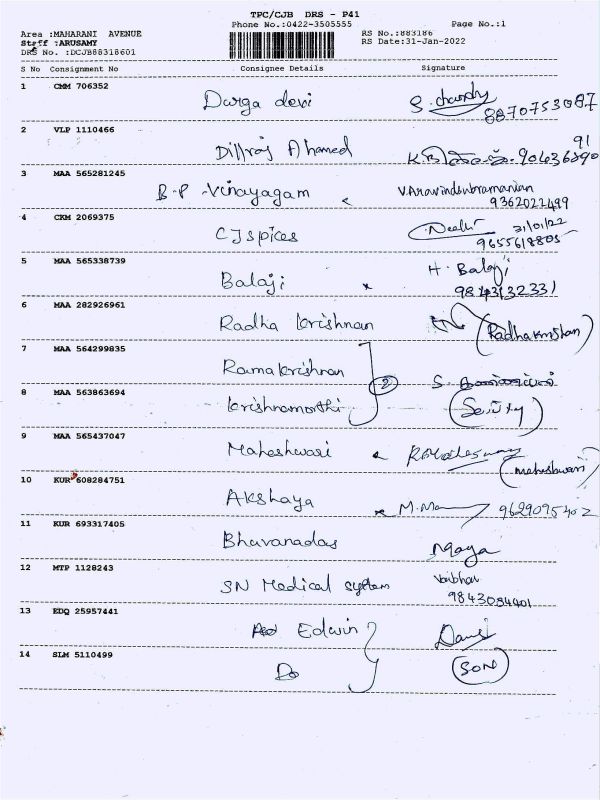 TPC/CJB DRS - P41
Phone No.:0422-3505555 Page No.:1
Area :MAHARANI AVENUE RS No.:883186
Staff :ARUSAMY RS Date:31-Jan-2022
DRS No. :DCJB88318601
S No Consignment No Consignee Details Signature
1 CMM 706352 Durga devi S. chandry 8870753087
2 VLP 1110466 Dillraj Ahamed
3 MAA 565281245 B-P-Vinayagam V.Aravindsubramanian 9362022499
4 CKM 2069375 CJ spices 31/01/22 9655618805
5 MAA 565338739 Balaji H. Balaji
6 MAA 282926961 Radha Krishnan (Radhakrishnan)
7 MAA 564299835 Ramakrishnan
2
8 MAA 563863694 Krishnamorthi
9 MAA 565437047 Maheshwari (Maheshwari)
10 KUR 608284751 Akshaya 9629095402
11 KUR 693317405 Bhavanadas
12 MTP 1128243 SN Medical system Vaibhav 9843084401
13 EDQ 25957441 Edwin
14 SLM 5110499 Do (SON)